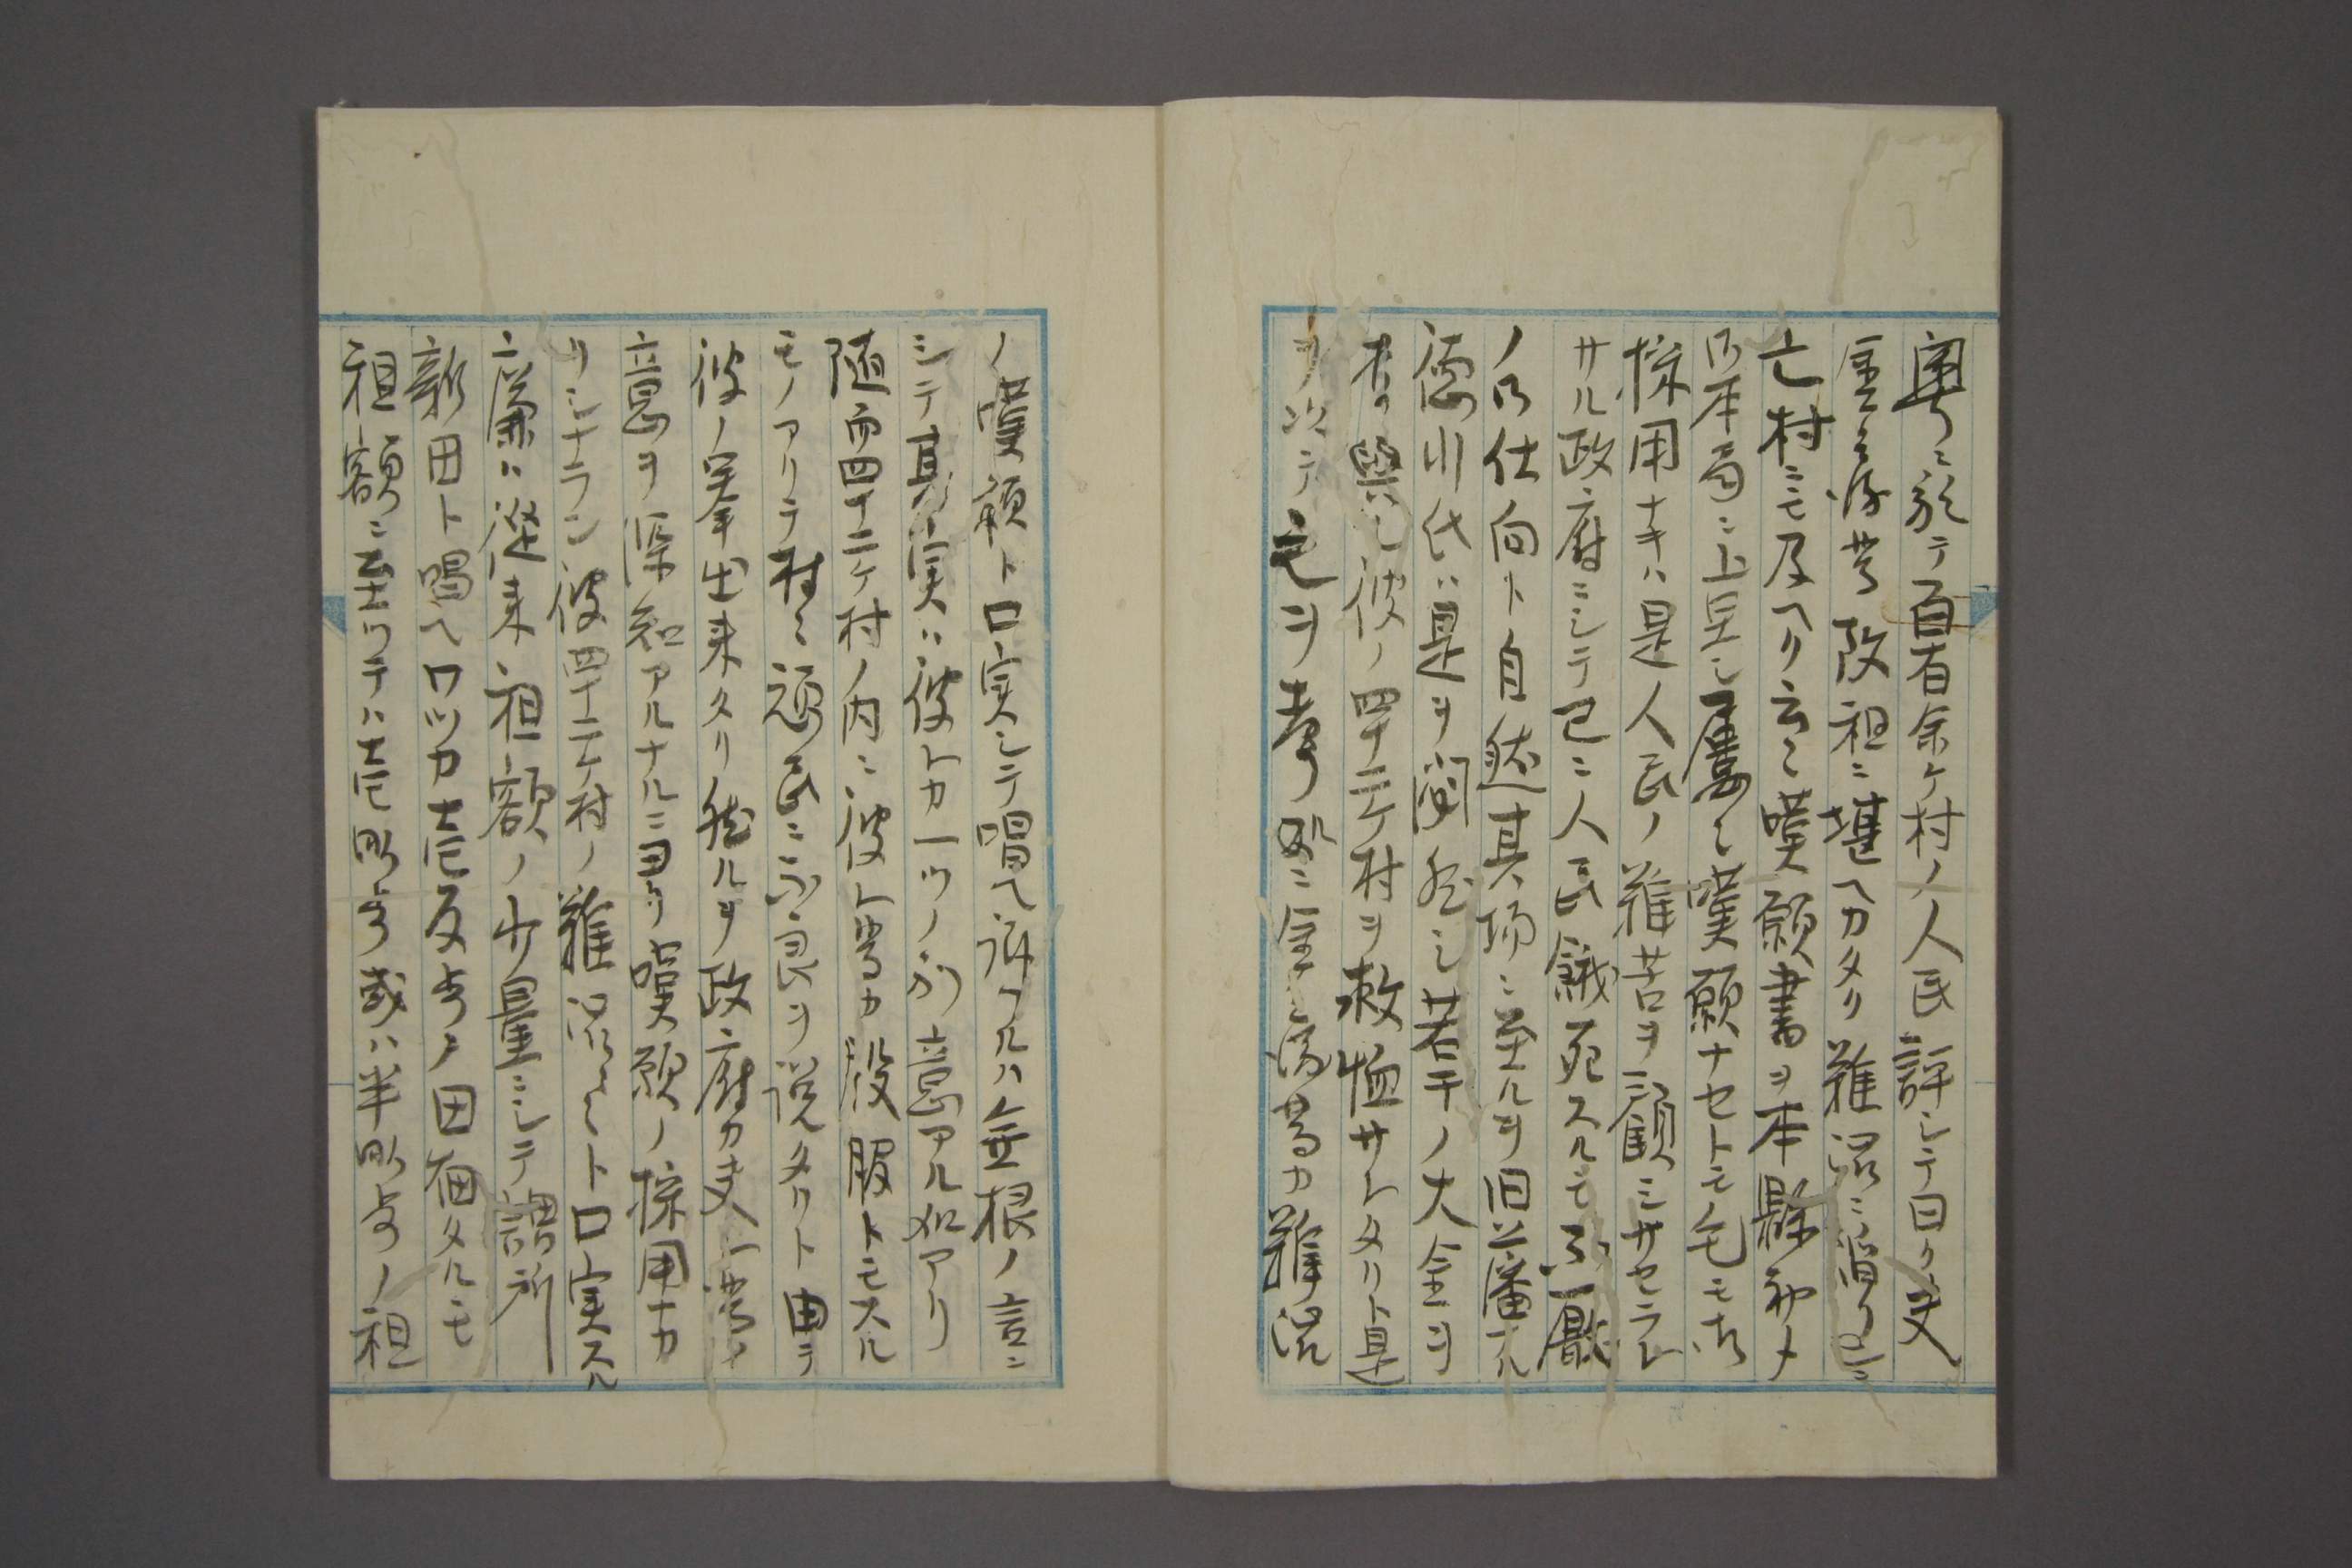 粤ニ於テ百有余ケ村ノ人民評シテ曰ク夫
金系等改祖ニ堪ヘカタリ難渋ニ溜リ已ニ
亡村ニモ及ヘリ云々嘆願書ヲ本縣初メ
乃本局ニ上呈シ屢々嘆願ナセトモ毛モ御
採用ナキハ是人民ノ難苦ヲ顧ミサセラレ
サル政府ニシテ已ニ人民餓死スルモ不厭
ノ御仕向ト自然其場ニ至ルヲ旧藩ナル
德川氏ハ是ヲ関然シ若干ノ大金ヲ
右ヘ與シ彼ノ四十二ケ村ヲ救恤サレタリト是
ヲ以テ毛ヲ考フルニ金系等カ難渋
ノ嘆願ト口実シテ唱ヘ訴フルハ無根ノ言ニ
シテ其実ハ彼レカ一ツノ別意アル如アリ
随而四十二ケ村ノ内ニ彼レ等カ股服トモスル
モノアリテ村々頑民ニ不良ヲ説タリト由テ
彼ノ挙出来タリ然ルヲ政府カ夫一業ノ
意ヲ深知アルナルニヨリ嘆願ノ採用ナカ
リシナラン彼四十二ケ村ノ難渋々々ト口実スル
廉ハ從来租額ノ少量ニシテ謂所
新田ト唱ヘワツカ壱反歩ノ田畑タルモ
租額ニ至リテハ壱町歩或ハ半町歩ノ租